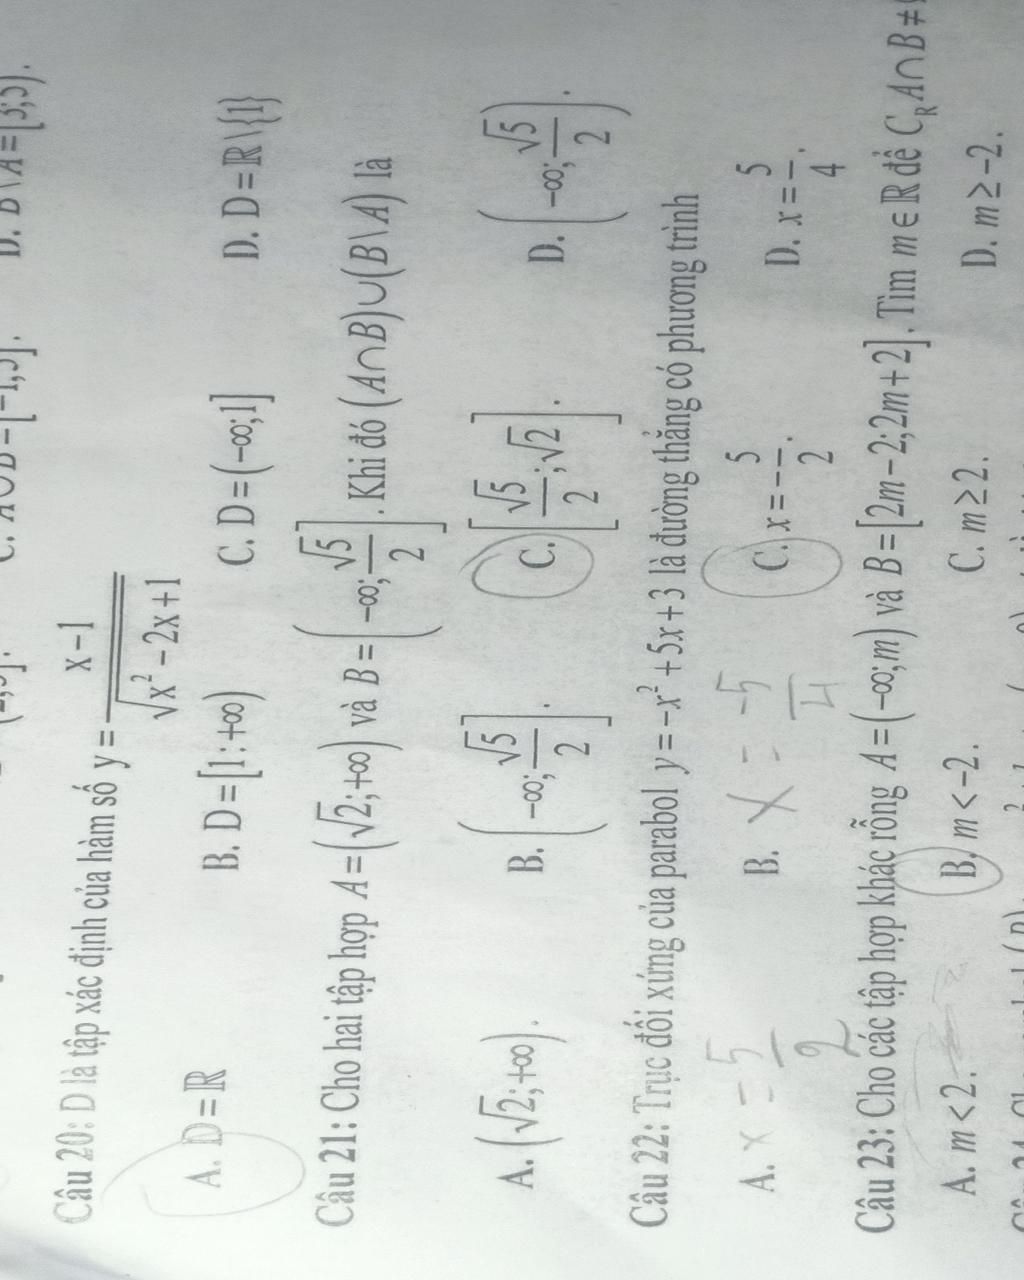 C. A∪B=[-1;5].
D. B\A=[3;5).
Câu 20: D là tập xác định của hàm số y = (x-1)/√(x²-2x+1)
A. D=ℝ B. D=[1:+∞) C. D=(-∞;1] D. D=ℝ\{1}
Câu 21: Cho hai tập hợp A=(√2;+∞) và B=(-∞;√5/2]. Khi đó (A∩B)∪(B\A) là
A. (√2;+∞). B. (-∞;√5/2]. C. [√5/2;√2]. D. (-∞;√5/2).
Câu 22: Trục đối xứng của parabol y=-x²+5x+3 là đường thẳng có phương trình
A. x = 5/2 B. x = -5/4 C. x=-5/2. D. x=5/4.
Câu 23: Cho các tập hợp khác rỗng A=(-∞;m) và B=[2m-2;2m+2]. Tìm m∈ℝ để C_R A∩B≠
A. m<2. B. m<-2. C. m≥2. D. m≥-2.